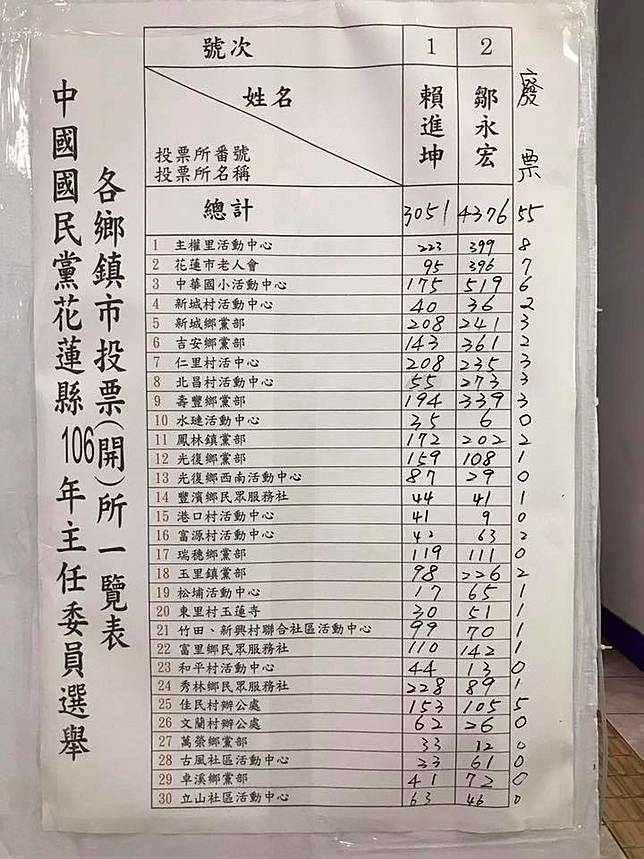 中國國民黨花蓮縣106年主任委員選舉
各鄉鎮市投票(開)所一覽表
號次 1 2
姓名 賴進坤 鄒永宏 廢票
投票所番號
投票所名稱
總計 3051 4376 55
1 主權里活動中心 223 399 8
2 花蓮市老人會 95 396 7
3 中華國小活動中心 175 519 6
4 新城村活動中心 40 36 2
5 新城鄉黨部 208 241 3
6 吉安鄉黨部 143 361 2
7 仁里村活中心 208 235 3
8 北昌村活動中心 55 273 3
9 壽豐鄉黨部 194 339 3
10 水璉活動中心 35 6 0
11 鳳林鎮黨部 172 202 2
12 光復鄉黨部 159 108 1
13 光復鄉西南活動中心 87 29 0
14 豐濱鄉民眾服務社 44 41 1
15 港口村活動中心 41 9 0
16 富源村活動中心 42 63 2
17 瑞穗鄉黨部 119 111 0
18 玉里鎮黨部 98 226 2
19 松埔活動中心 17 65 1
20 東里村玉蓮寺 30 51 1
21 竹田、新興村聯合社區活動中心 99 70 1
22 富里鄉民眾服務社 110 142 1
23 和平村活動中心 44 13 0
24 秀林鄉民眾服務社 228 89 1
25 佳民村辦公處 153 105 5
26 文蘭村辦公處 62 26 0
27 萬榮鄉黨部 33 12 0
28 古風社區活動中心 23 61 0
29 卓溪鄉黨部 41 72 0
30 立山社區活動中心 63 46 0